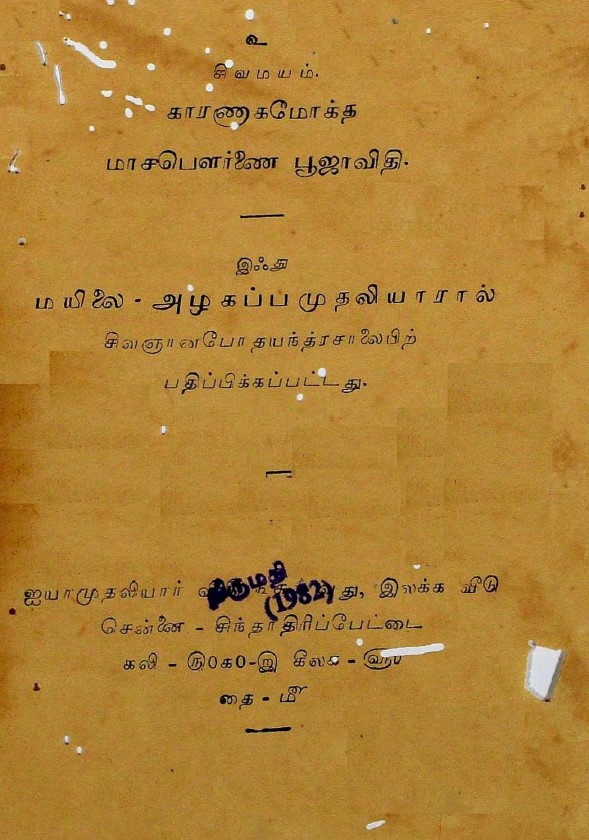 உ
சிவமயம்.
காரணாகமோக்த
மாசபௌர்ணை பூஜாவிதி.
இஃது
மயிலை - அழகப்பமுதலியாரால்
சிவஞானபோதயந்த்ரசாலையிற்
பதிப்பிக்கப்பட்டது.
ஐயாமுதலியார் து, இலக்க வீடு
திருமதி
(1982)
சென்னை - சிந்தாதிரிப்பேட்டை
கலி - கீலக -
தை - மீ